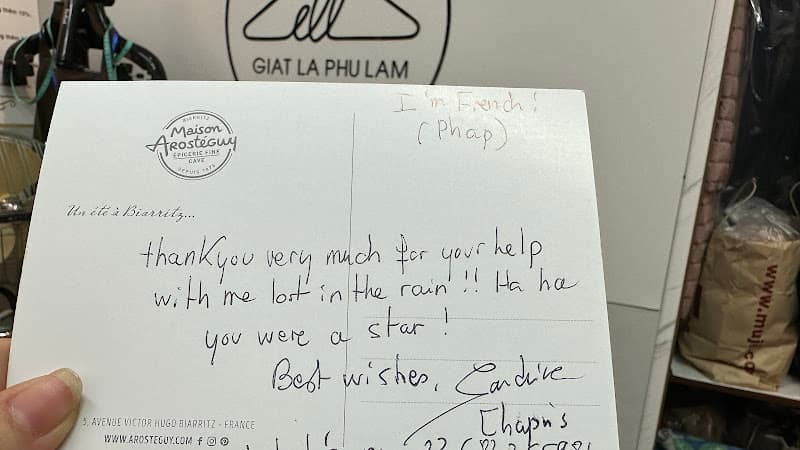 GIAT LA PHU LAM
I'm French!
(Phap)
BIARRITZ
Maison
AROSTÉGUY
EPICERIE FINE
CAVE
DEPUIS 1875
Un été à Biarritz...
thank you very much for your help
with me lost in the rain!! Ha ha
you were a star!
Best wishes,
5, AVENUE VICTOR HUGO BIARRITZ - FRANCE
WWW.AROSTEGUY.COM
www.muji.co